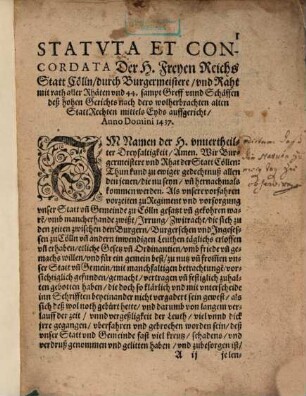 1
STATVTA ET CON-
CORDATA Der H. Freyen Reichs
Statt Cölln/durch Burgermeistere/vnd Raht
mit rath aller Rhäten vnd 44. sampt Greff vnnd Schöffen
deß hohen Gerichts nach dero wolherbrachten alten
Statt Rechten mittels Eyds auffgericht/
Anno Domini 1437.
IM Namen der H. vnuertheil-
ter Dreyfaltigkeit/Amen. Wir Bur-
germeistere vnd Rhat der Statt Cöllen:
Thun kund zu ewiger gedechtnuß allen
den jenen/die nu seyn/vñ hernachmals
kommen werden. Als vnsere vorfahren
vorzeiten zu Regiment vnd vorsorgung
vnser Statt vñ Gemeinde zu Cölln gesatzt vñ gefohren wa-
ren/vmb mancherhande zwist/Irrung/Zwitracht/die sich zu
den zeiten zwischen den Burgern/Burgerschen vnd Ingesess-
sen zu Cölln vñ andern inwendigen Leuthen täglichs erloffen
vñ erhaben/etliche Gesetz vñ Ordinantien/vmb friede vñ ge-
machs willen/vnd für ein gemein best/zu nutz vñ fromen vn-
ser Statt vñ Gemein/mit manchfaltigen betrachtungē/vor-
sichtiglich gefunden/gemacht/vertragen vñ festiglich zuhal-
ten gebotten haben/die doch so klärlich vnd mit vnterscheide
inn Schrifften beyeinander nicht vergadert sein gewest/als
sich deß wol noth gebürt hette/vnd darumb von langem ver-
lauff der zeit/vnnd vergeßligkeit der Leuth/viel vnnd dick
jrre gegangen/vberfahren vnd gebrochen worden sein/deß
vnser Statt vnd Gemeinde fast viel kreutz/schadens/vnd
verdruß genommen vnd gelitten haben/vnd zubesorgen ist/
A ij
je len-